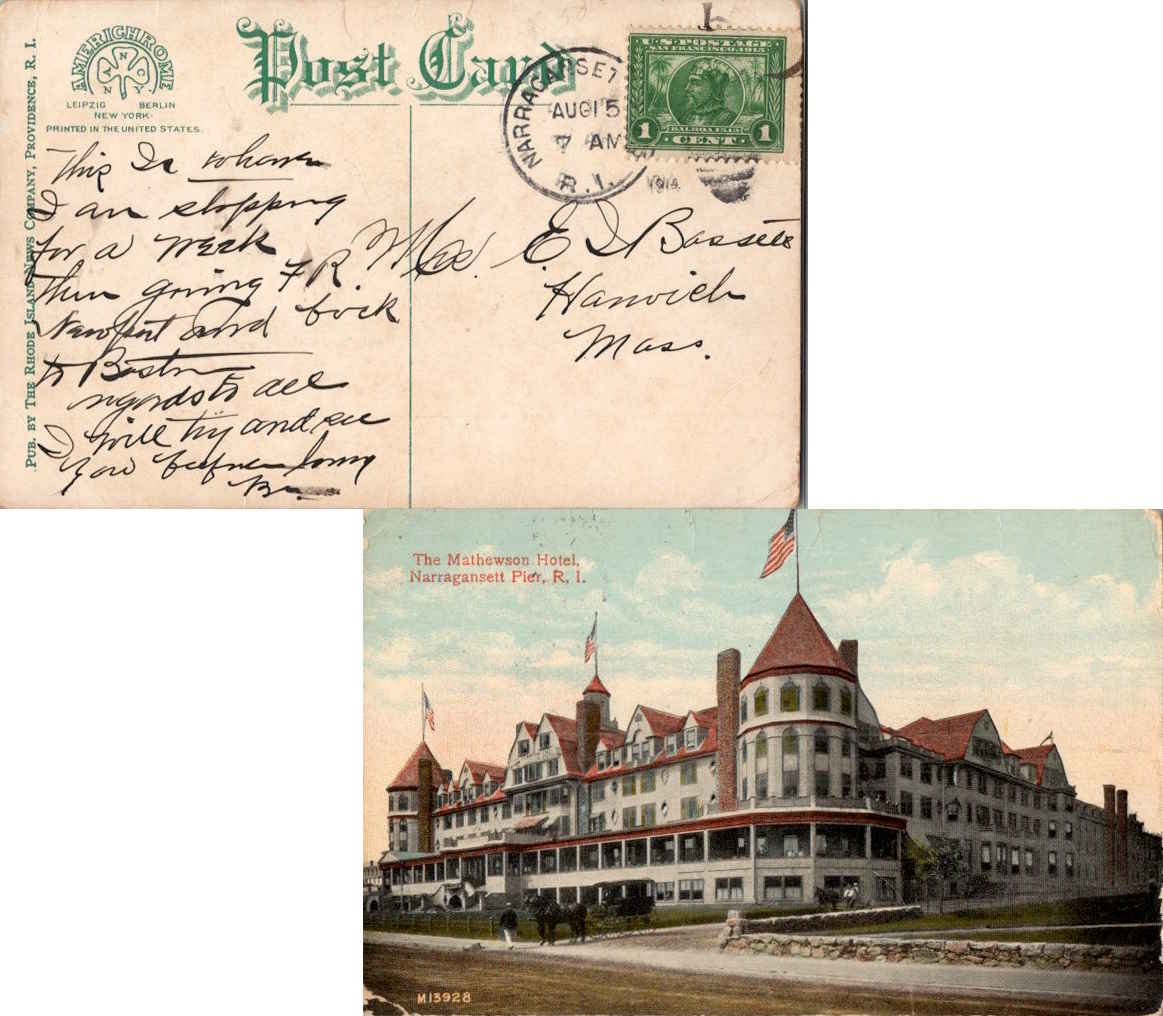 PUB. BY THE RHODE ISLAND NEWS COMPANY, PROVIDENCE, R. I.
AMERICHROME
ANCNY
LEIPZIG BERLIN
NEW YORK.
PRINTED IN THE UNITED STATES.
Post Card
NARRAGANSETT
AUG 15
7 AM
R.I.
1914
U.S. POSTAGE
SAN FRANCISCO 1915
BALBOA 1513
1 CENT 1
This Is where
I am stopping
for a week
then going
Newport and back
to Boston
regards to all
I will try and see
you before long
Mrs. E
Bassett
Harwich
Mass.
The Mathewson Hotel,
Narragansett Pier, R. I.
M13928